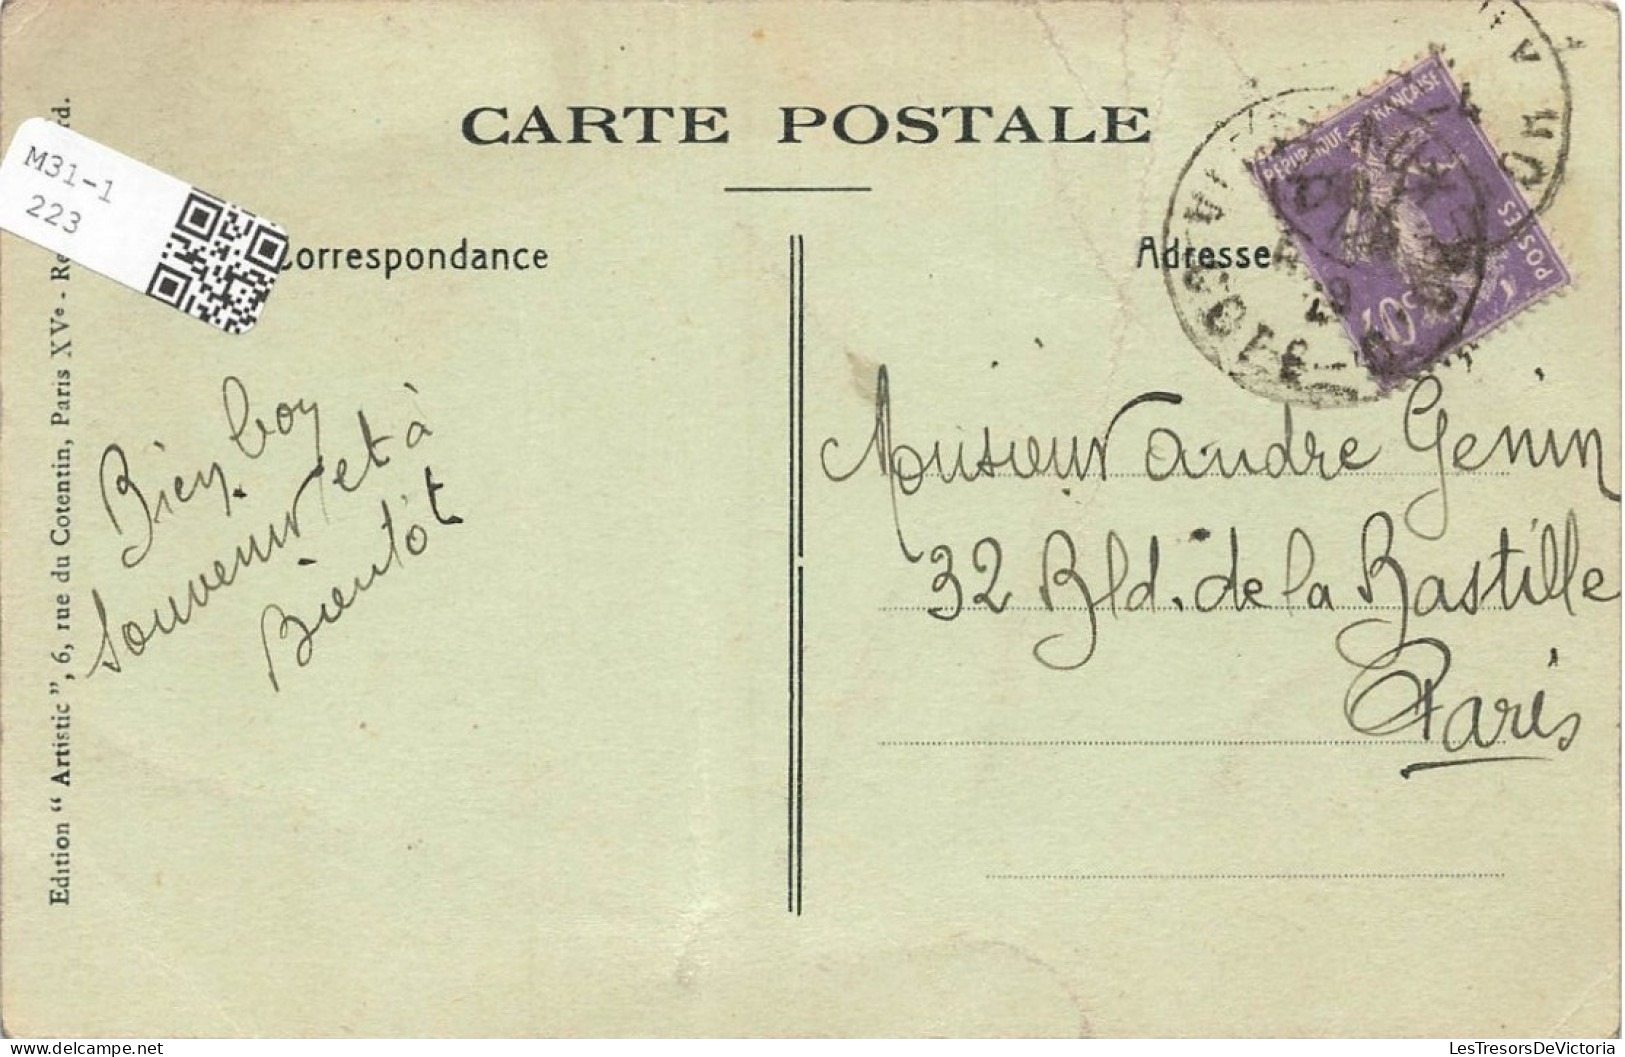 CARTE POSTALE
Correspondance
Adresse
M31-1
223
Edition “ Artistic ”, 6, rue du Cotentin, Paris XVe - Re rd.
RÉPUBLIQUE FRANÇAISE
POSTES
40c
Bien bon
souvenir et à
Bientôt
Monsieur andre Genin
32 Bld. de la Bastille
Paris
LesTresorsDeVictoria.com